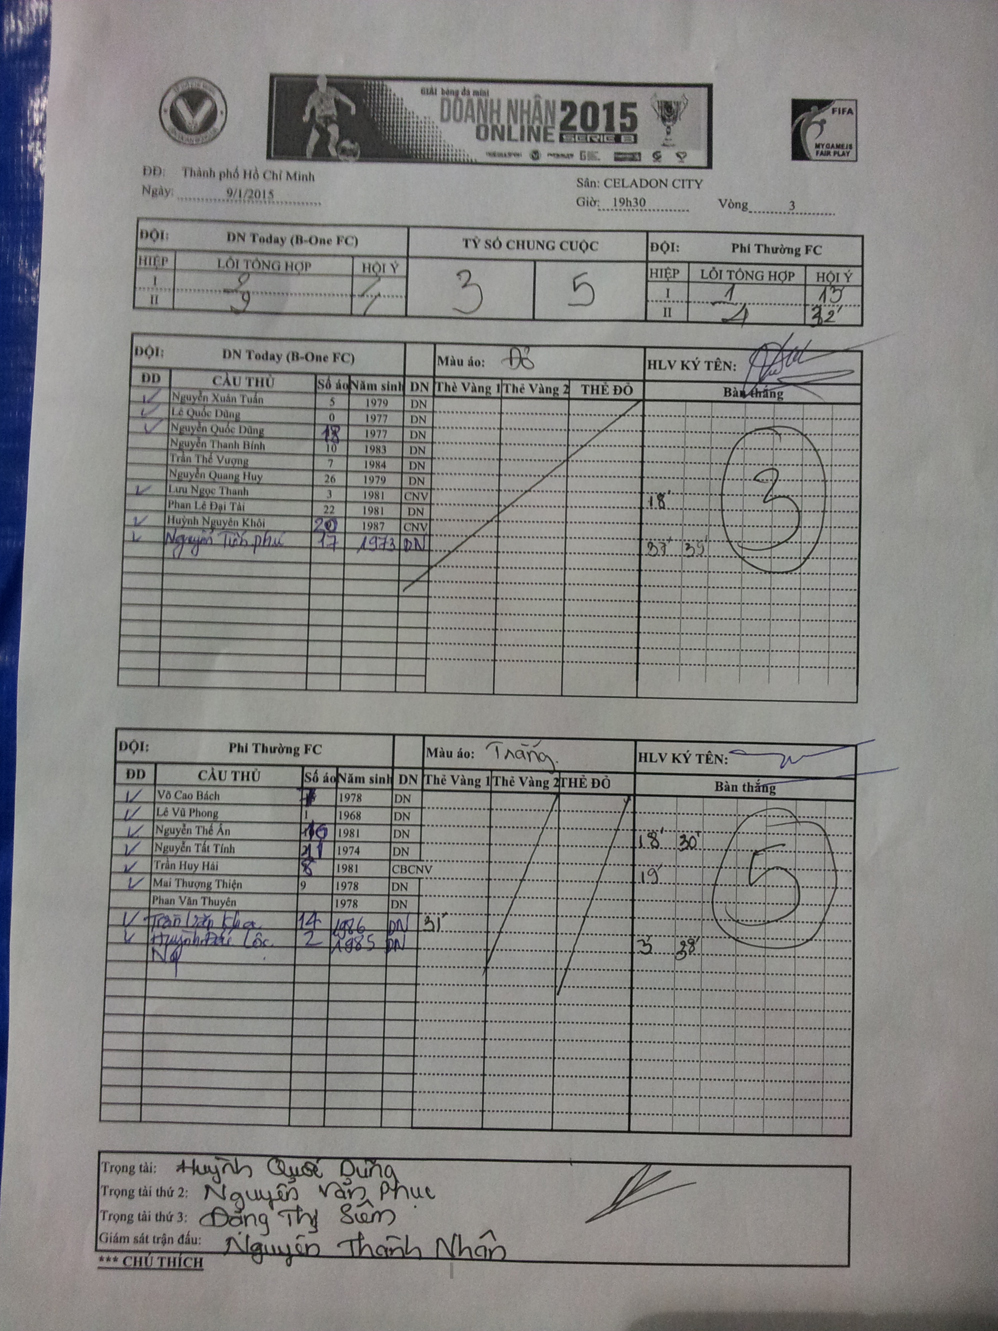 GIẢI bóng đá mini
DOANH NHÂN 2015
ONLINE SERIE B
FIFA
MY GAME IS
FAIR PLAY
ĐĐ: Thành phố Hồ Chí Minh
Sân: CELADON CITY
Ngày: 9/1/2015
Giờ: 19h30 Vòng 3
ĐỘI: DN Today (B-One FC) TỶ SỐ CHUNG CUỘC ĐỘI: Phi Thường FC
HIỆP LỖI TỔNG HỢP HỘI Ý 3 5 HIỆP LỖI TỔNG HỢP HỘI Ý
I I 1 13'
II II 32'
ĐỘI: DN Today (B-One FC) Màu áo: Đỏ HLV KÝ TÊN:
ĐD CẦU THỦ Số áo Năm sinh DN Thẻ Vàng 1 Thẻ Vàng 2 THẺ ĐỎ Bàn thắng
Nguyễn Xuân Tuấn 5 1979 DN
Lê Quốc Dũng 0 1977 DN
Nguyễn Quốc Dũng 18 1977 DN
Nguyễn Thanh Bính 10 1983 DN
Trần Thế Vượng 7 1984 DN
Nguyễn Quang Huy 26 1979 DN
Lưu Ngọc Thanh 3 1981 CNV 18'
Phan Lê Đại Tài 22 1981 DN
Huỳnh Nguyên Khôi 20 1987 CNV
Nguyễn Tiến Phú 17 1973 DN 35'
3
ĐỘI: Phi Thường FC Màu áo: Trắng HLV KÝ TÊN:
ĐD CẦU THỦ Số áo Năm sinh DN Thẻ Vàng 1 Thẻ Vàng 2 THẺ ĐỎ Bàn thắng
Võ Cao Bách 1978 DN
Lê Vũ Phong 1 1968 DN
Nguyễn Thế Ân 1981 DN 18' 30'
Nguyễn Tất Tính 1974 DN
Trần Huy Hải 8 1981 CBCNV 19'
Mai Thượng Thiện 9 1978 DN
Phan Văn Thuyên 1978 DN
Trần Văn Kha 14 1986 DN 31'
Lộc 2 1985 DN 3 38'
5
Trọng tài: Huỳnh Quốc Dũng
Trọng tài thứ 2: Nguyễn Văn Phục
Trọng tài thứ 3: Đặng Thị Siêm
Giám sát trận đấu: Nguyễn Thành Nhân
*** CHÚ THÍCH